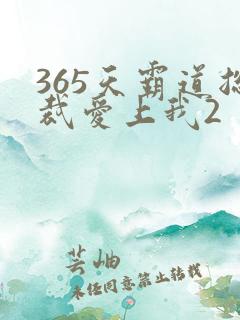 365天霸道总
裁爱上我2
芸岫
未经同意禁止转载